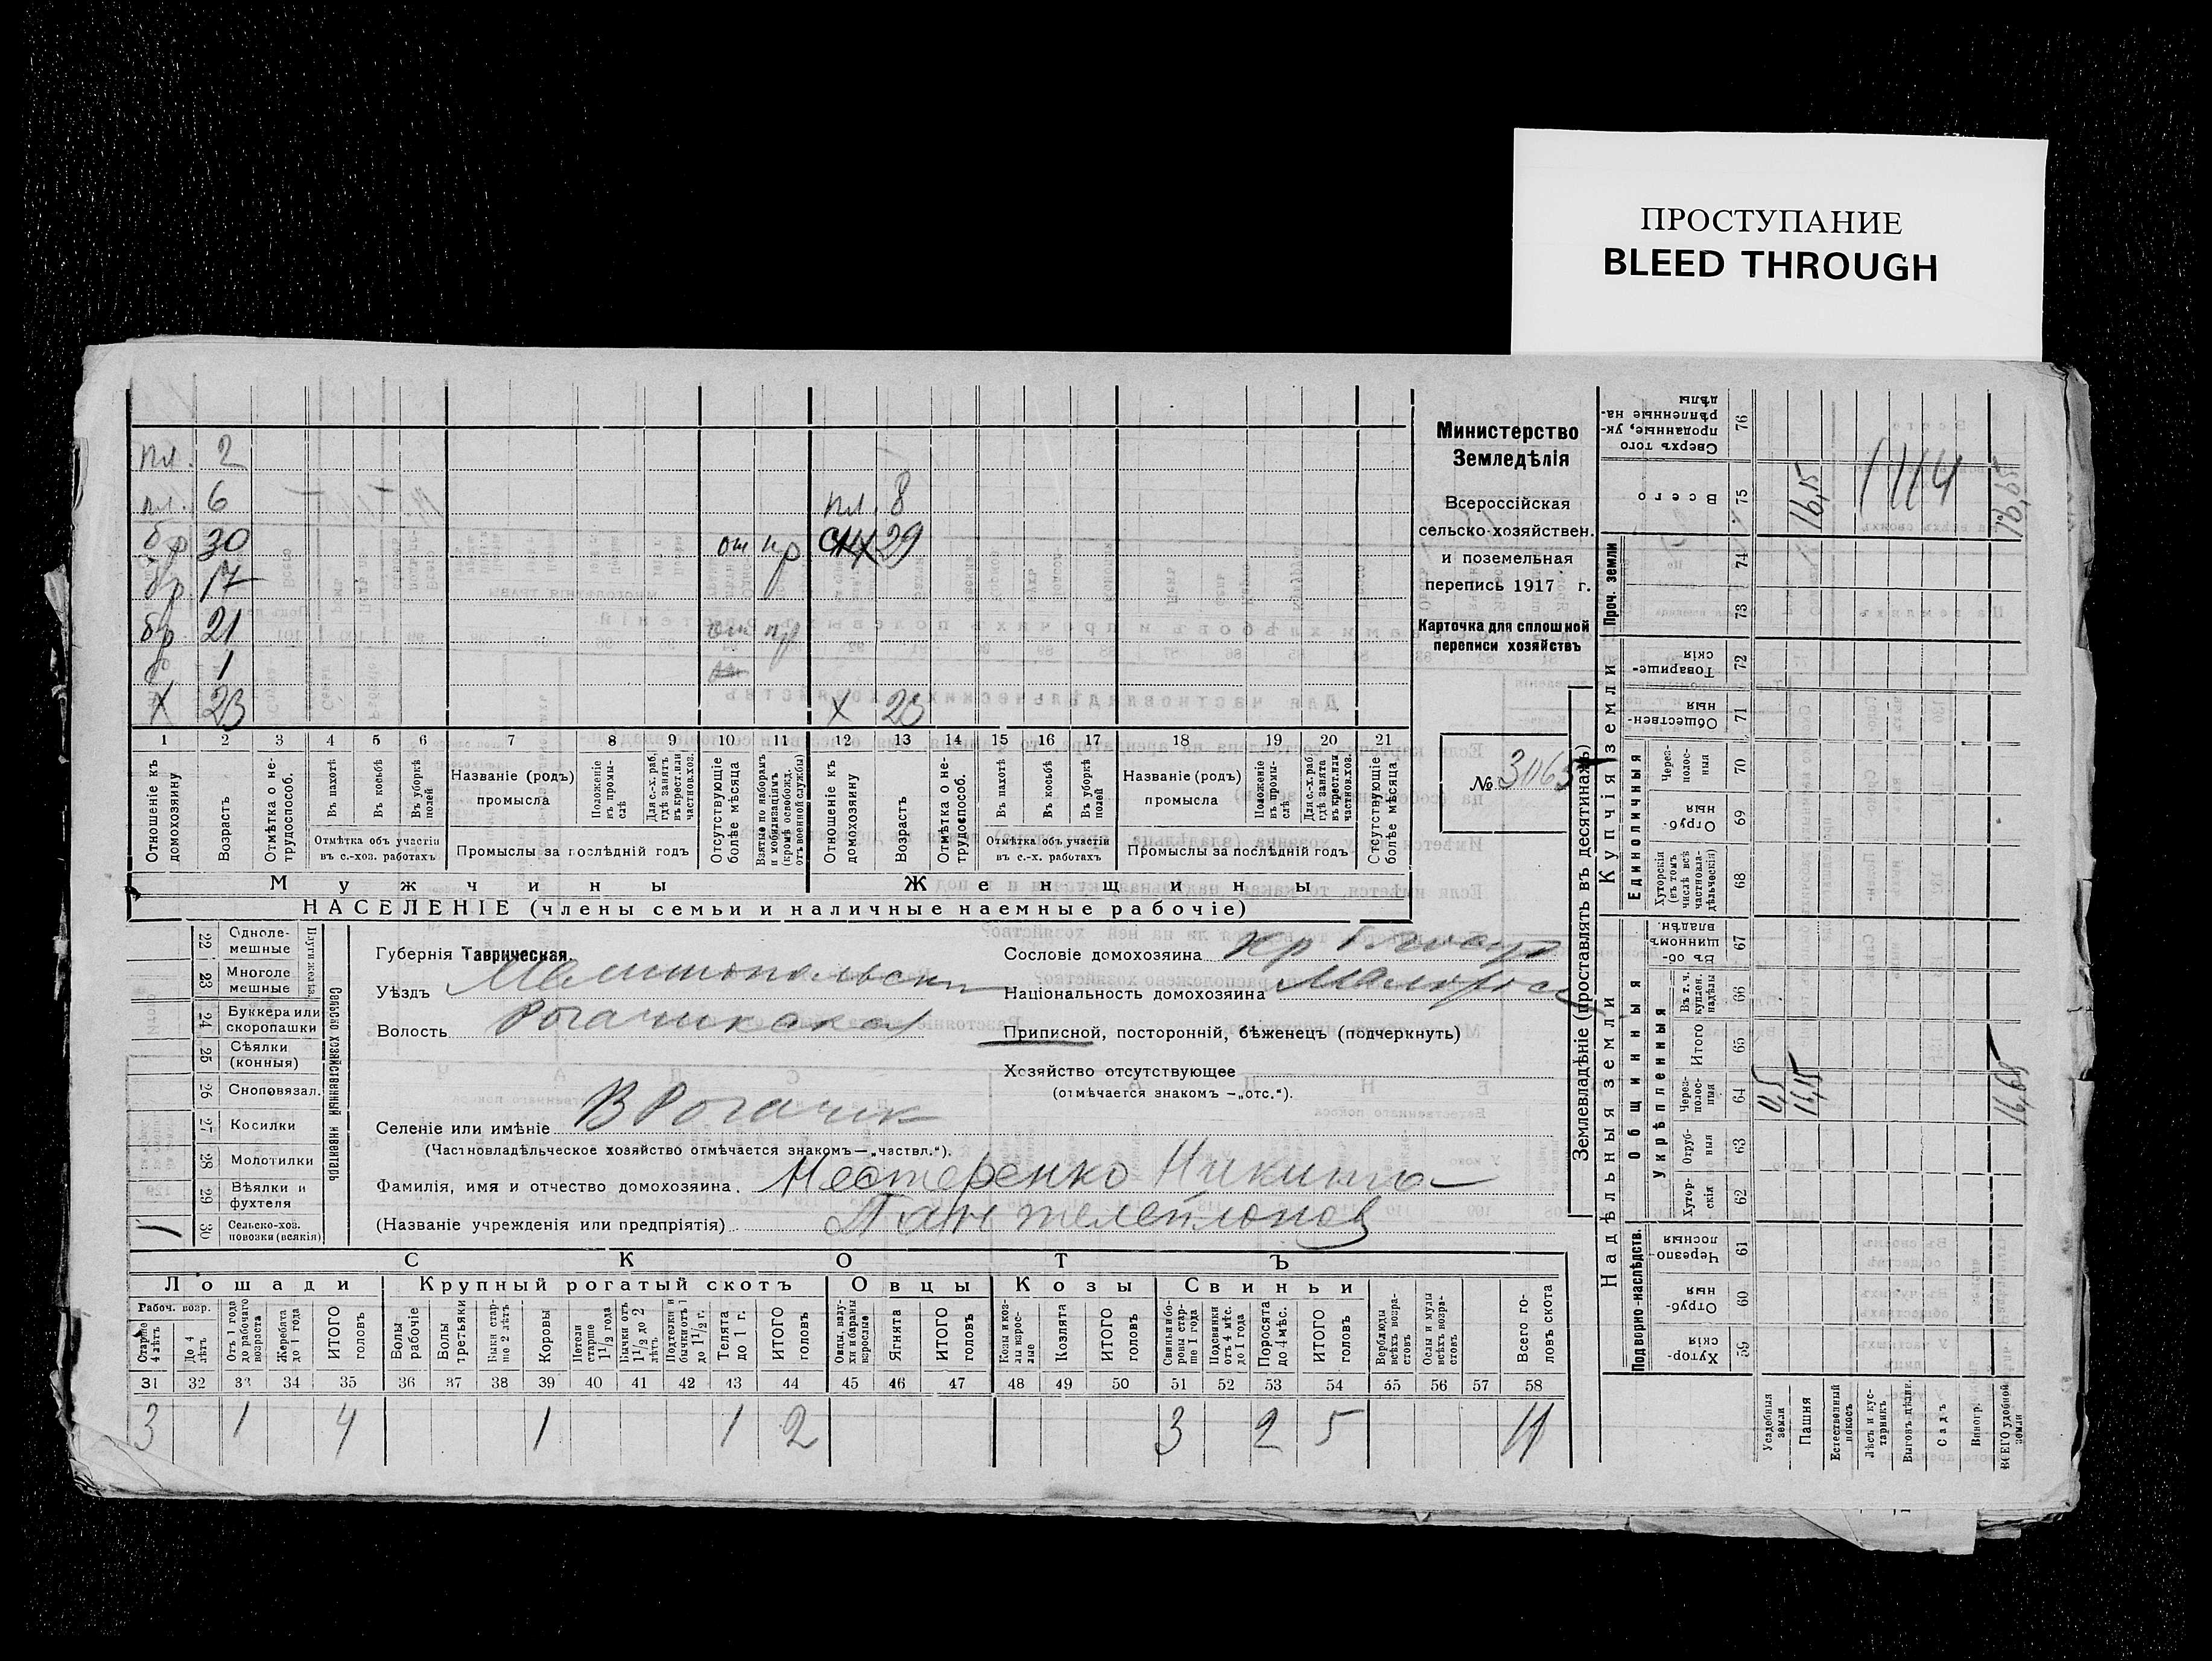 ПРОСТУПАНИЕ
BLEED THROUGH
пл. 2
пл. 6 пл. 8
бр 30 от пр 29
бр 17
бр 21 от пр
1
х 23 х 23
1 2 3 4 5 6 7 8 9 10 11 12 13 14 15 16 17 18 19 20 21
Отношеніе къ домохозяину
Возрастъ
Отмѣтка о не-трудоспособ.
Въ пахотѣ
Въ косьбѣ
Въ уборкѣ полей
Отмѣтка объ участіи въ с.-хоз. работахъ
Названіе (родъ) промысла
Положеніе въ промы-слѣ
Для с.-х. раб. гдѣ занятъ въ крест. или частнов. хоз.
Промыслы за послѣдній годъ
Отсутствующіе болѣе мѣсяца
Взятые по наборамъ и мобилизаціямъ (кромѣ освобожд. отъ военной службы)
Отношеніе къ домохозяину
Возрастъ
Отмѣтка о не-трудоспособ.
Въ пахотѣ
Въ косьбѣ
Въ уборкѣ полей
Отмѣтка объ участіи въ с.-х. работахъ
Названіе (родъ) промысла
Положеніе въ промы-слѣ
Для с.-х. раб. гдѣ занята въ крест. или частнов. хоз.
Промыслы за послѣдній годъ
Отсутствующіе болѣе мѣсяца
Мужчины
Женщины
НАСЕЛЕНІЕ (члены семьи и наличные наемные рабочіе)
Министерство
Земледѣлія
Всероссійская
сельско-хозяйствен.
и поземельная
перепись 1917 г.
Карточка для сплошной
переписи хозяйствъ
№ 3065
22 Одноле-мешные
23 Многоле мешные
24 Буккера или скоропашки
25 Сѣялки (конныя)
26 Сноповязал.
27 Косилки
28 Молотилки
29 Вѣялки и фухтеля
30 Сельско-хоз. повозки (всякія) 1
Сельско хозяйственный инвентарь
Губернія Таврическая.
Уѣздъ Мелитопольскій
Волость Рогачикская
Сословіе домохозяина кр
Національность домохозяина Малорос
Приписной, посторонній, бѣженецъ (подчеркнуть)
Хозяйство отсутствующее
(отмѣчается знакомъ —„отс.“).
Селеніе или имѣніе В Рогачик
(Частновладѣльческое хозяйство отмѣчается знакомъ—„частвл.“).
Фамилія, имя и отчество домохозяина. Нестеренко Никита
(Названіе учрежденія или предпріятія)
СКОТЪ
Лошади Крупный рогатый скотъ Овцы Козы Свиньи
Рабоч. возр.
Старше 4 лѣтъ
До 4 лѣтъ
Отъ 1 года до рабочаго возраста
Жеребята до 1 года
ИТОГО головъ
Волы рабочіе
Волы третьяки
Быки стар-ше 2 лѣтъ
Коровы
Нетели старше 1½ года
Бычки отъ 1½ до 2 лѣтъ
Подтелки и бычки отъ 1 до 1½ г.
Телята до 1 г.
ИТОГО головъ
Овцы, валу-хи и бараны взрослые
Ягнята
ИТОГО головъ
Козы и коз-лы взрос-лые
Козлята
ИТОГО головъ
Свиньи и бо-ровы стар-ше 1 года
Подсвинки отъ 4 мѣс. до 1 года
Поросята до 4 мѣс.
ИТОГО головъ
Верблюды всѣхъ возра-стовъ
Ослы и мулы всѣхъ возра-стовъ
Всего го-ловъ скота
31 32 33 34 35 36 37 38 39 40 41 42 43 44 45 46 47 48 49 50 51 52 53 54 55 56 57 58
3 1 4 1 1 2 3 2 5 11
Землевладѣніе (проставлять въ десятинахъ)
Надѣльныя земли
Купчія земли
Проч. земли
Подворно-наслѣдств.
Общинныя
Укрѣпленныя
Единоличныя
Сверхъ того проданные, ук-рѣпленные на-дѣлы 76
Всего 75
74
73
Товарище-скія 72
Обществен-ныя 71
Через-полос-ныя 70
Отруб-ныя 69
Хуторскія (въ томъ числѣ всѣ частновла-дѣльческія) 68
Въ об-щинномъ владѣн. 67
Въ т. ч. куплен. надѣлы 66
Итого 65
Через-полос-ныя 64
Отруб-ныя 63
Хутор-скія 62
Черезпо-лосныя 61
Отруб-ныя 60
Хутор-скія 59
Усадебныя земли
Пашня 16,15 16,15
Естественный покосъ
Лѣсъ и кус-тарникъ
Выгонъ
Садъ
Виногр.
ВСЕГО удобной земли